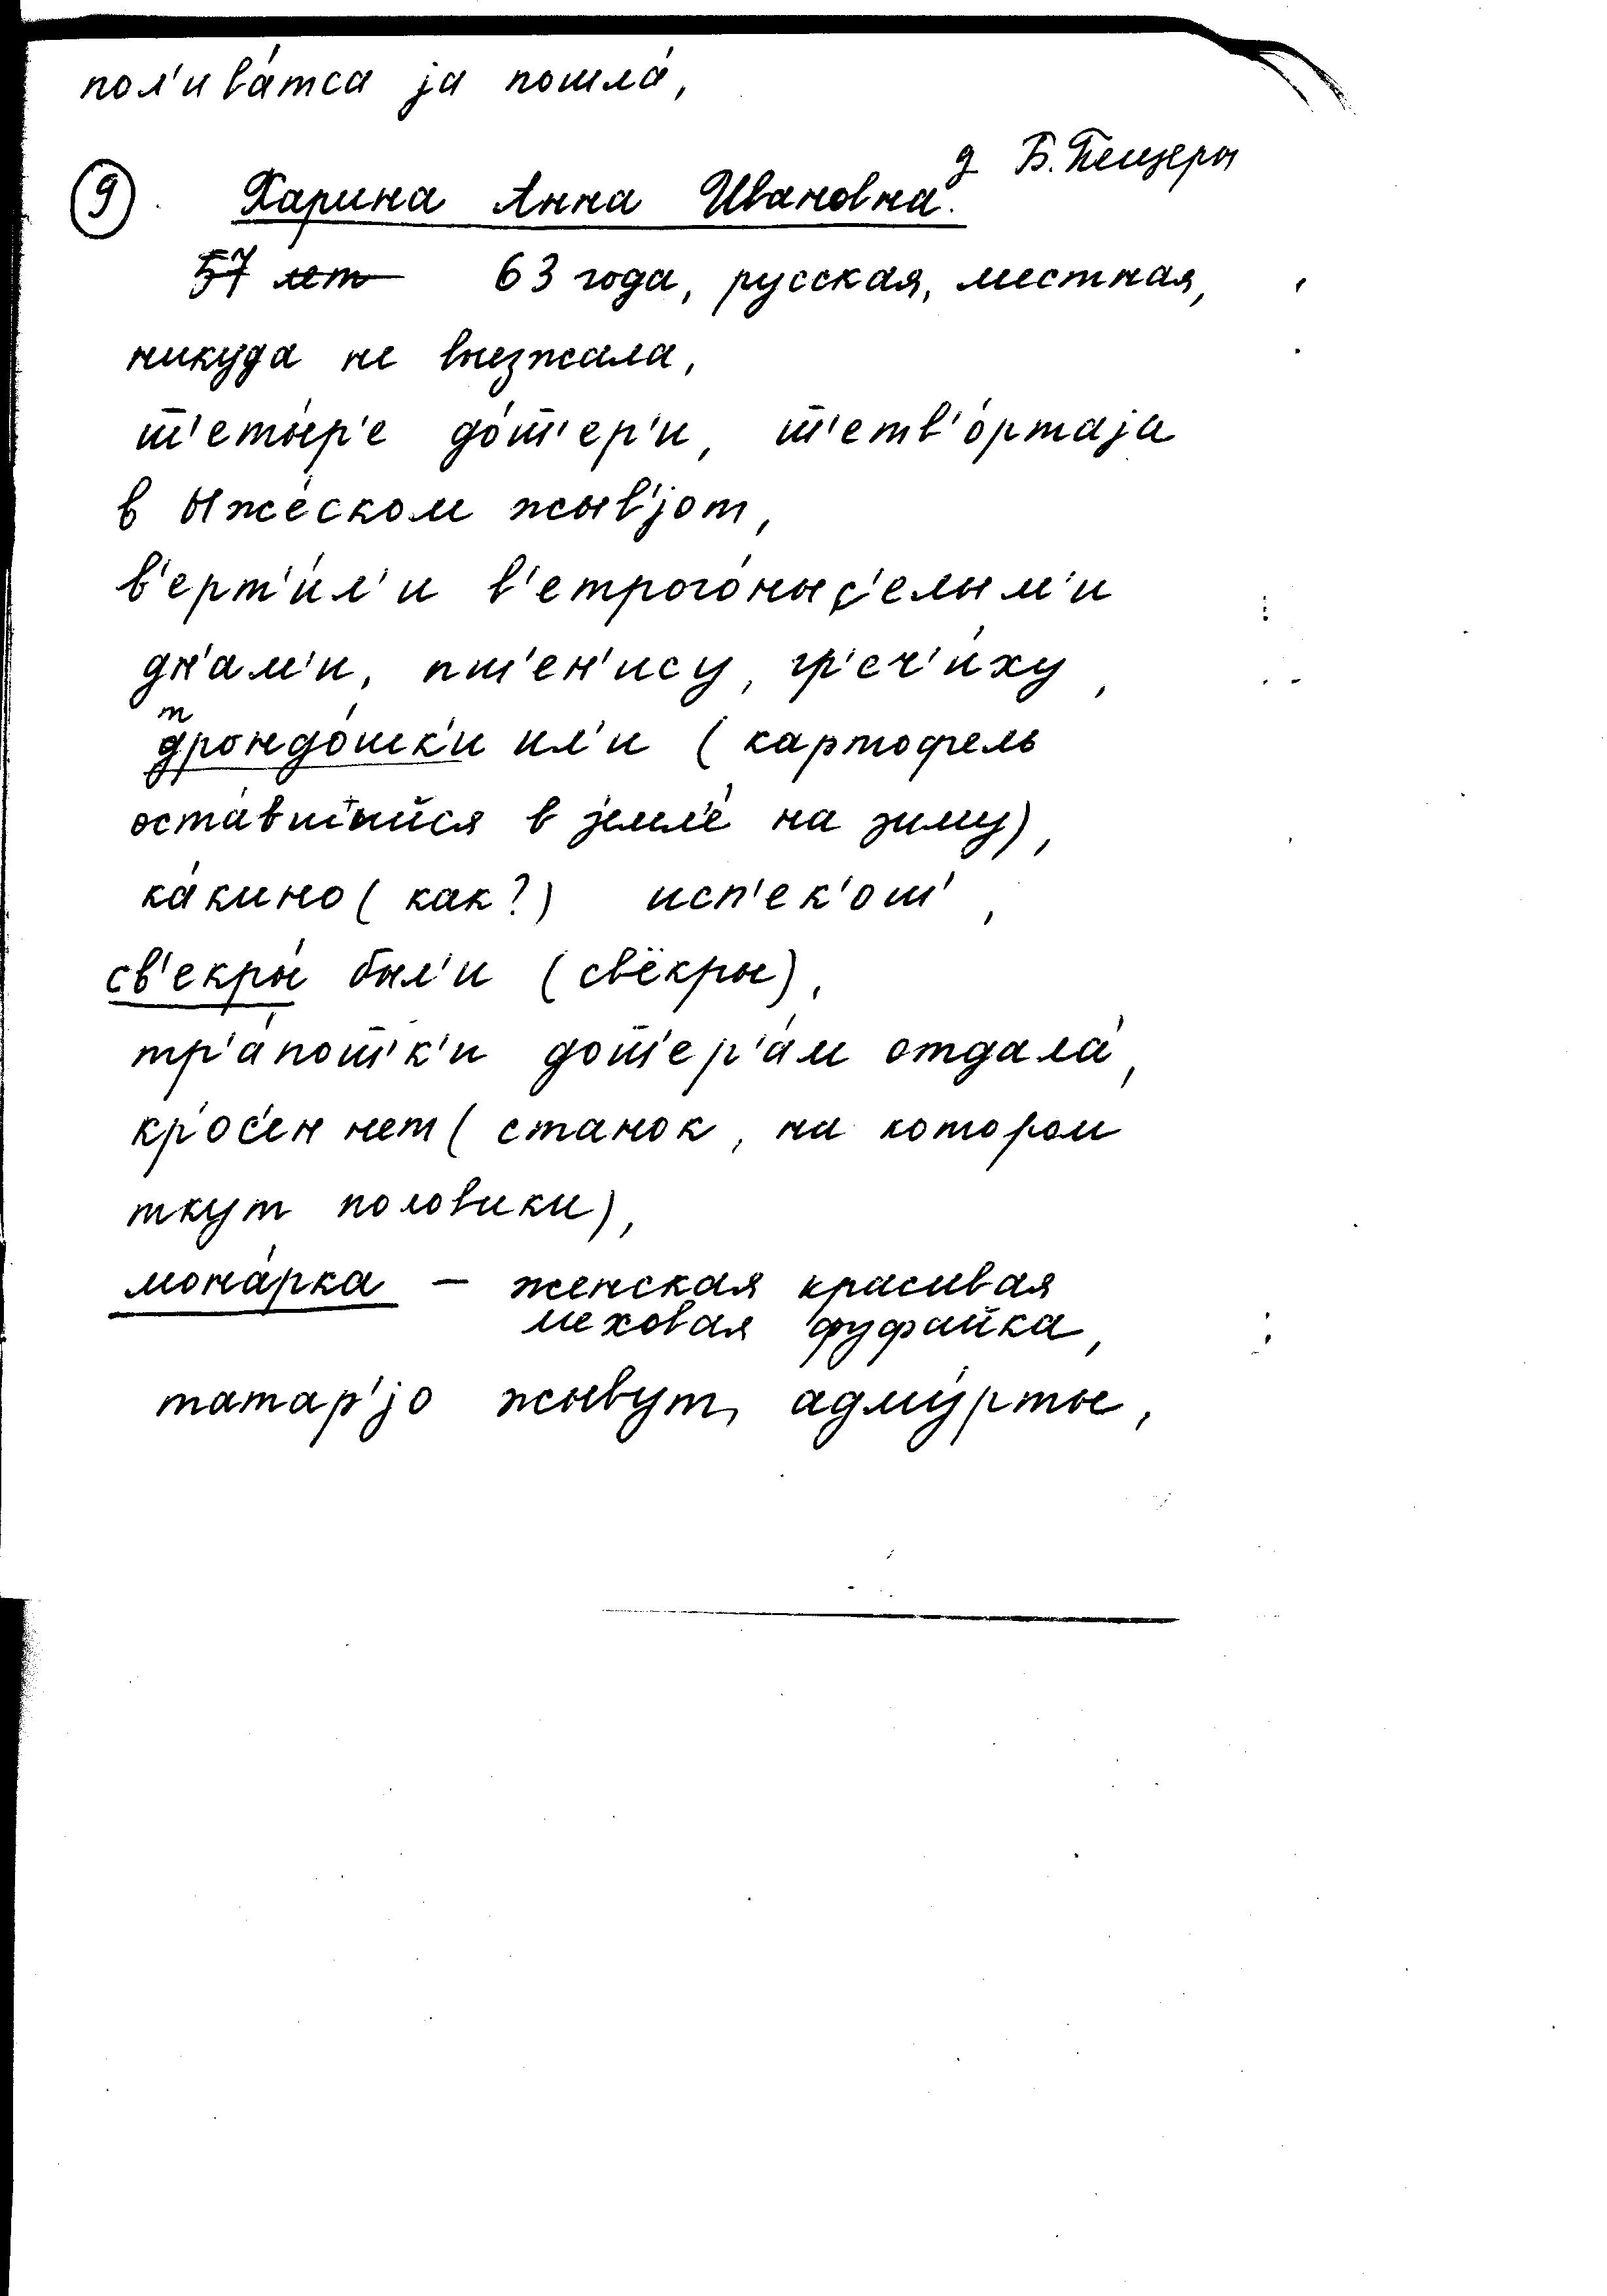 пол'ива́тса jа пошла́,
д Б. Пещеры
9. Харина Анна Ивановна.
57 лет 63 года, русская, местная,
никуда не выезжала,
ш'еты́р'е до́ш'ер'и, ш'етв'о́ртаjа
в Ыже́ском жыв'jот,
в'ерт'и́л'и в'етрого́ны с'елым'и
дн'ам'и, пш'ен'ису, гр'еч'и́ху,
т
дрондо́шк'и ил'и (картофель
оста́вшийся в земле́ на зиму),
ка́кино (как?) исп'ек'ош',
св'екры́ был'и (свёкры),
тр'а́пош'к'и дош'ер'а́м отдала́,
кросен нет (станок, на котором
ткут половики),
мона́рка – женская красивая
меховая фуфайка,
татар'jо жывут, адму́рты,